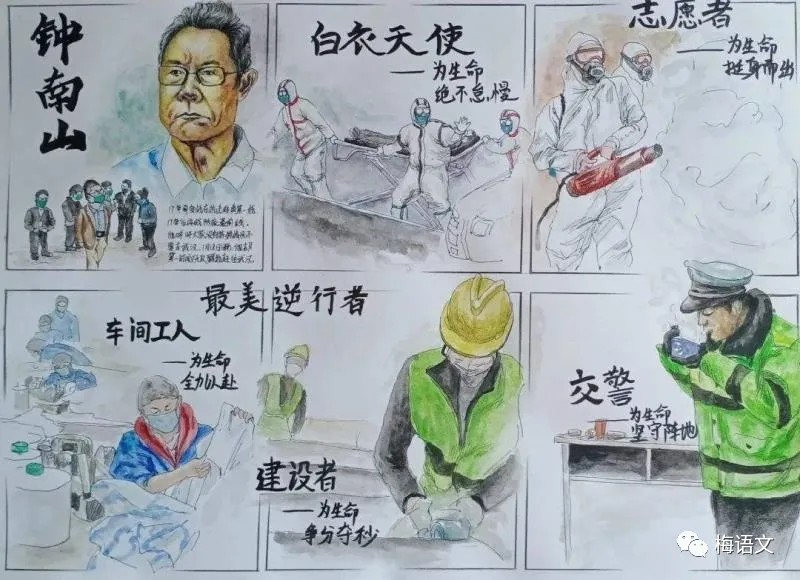 钟南山
17年前奋战在抗击非典第一线
白衣天使
——为生命
绝不怠慢
志愿者
——为生命
挺身而出
最美逆行者
车间工人
——为生命
全力以赴
建设者
——为生命
争分夺秒
交警
——为生命
坚守阵地
梅语文